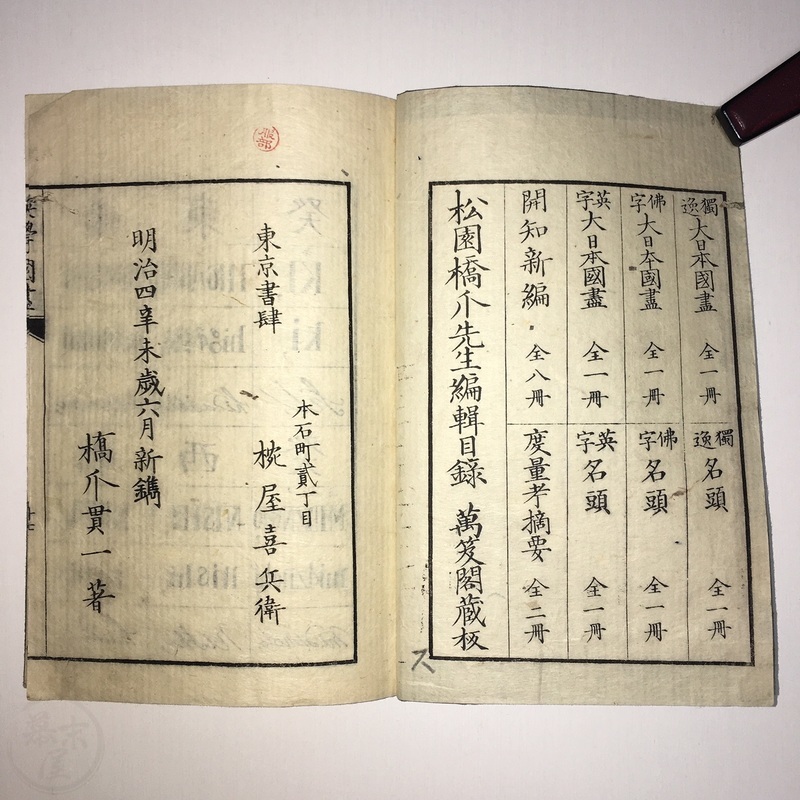 獨逸 大日本國盡 全一冊 獨逸 名頭 全一冊
佛字 大日本國盡 全一冊 佛字 名頭 全一冊
英字 大日本國盡 全一冊 英字 名頭 全一冊
開知新編 全八冊 度量考摘要 全二冊
松園橋爪先生編輯目録 萬笈閣蔵板
ス
服部
東京書肆
本石町貳丁目
椀屋喜兵衛
明治四辛未歳六月新鐫
橋爪貫一著
幕末屋